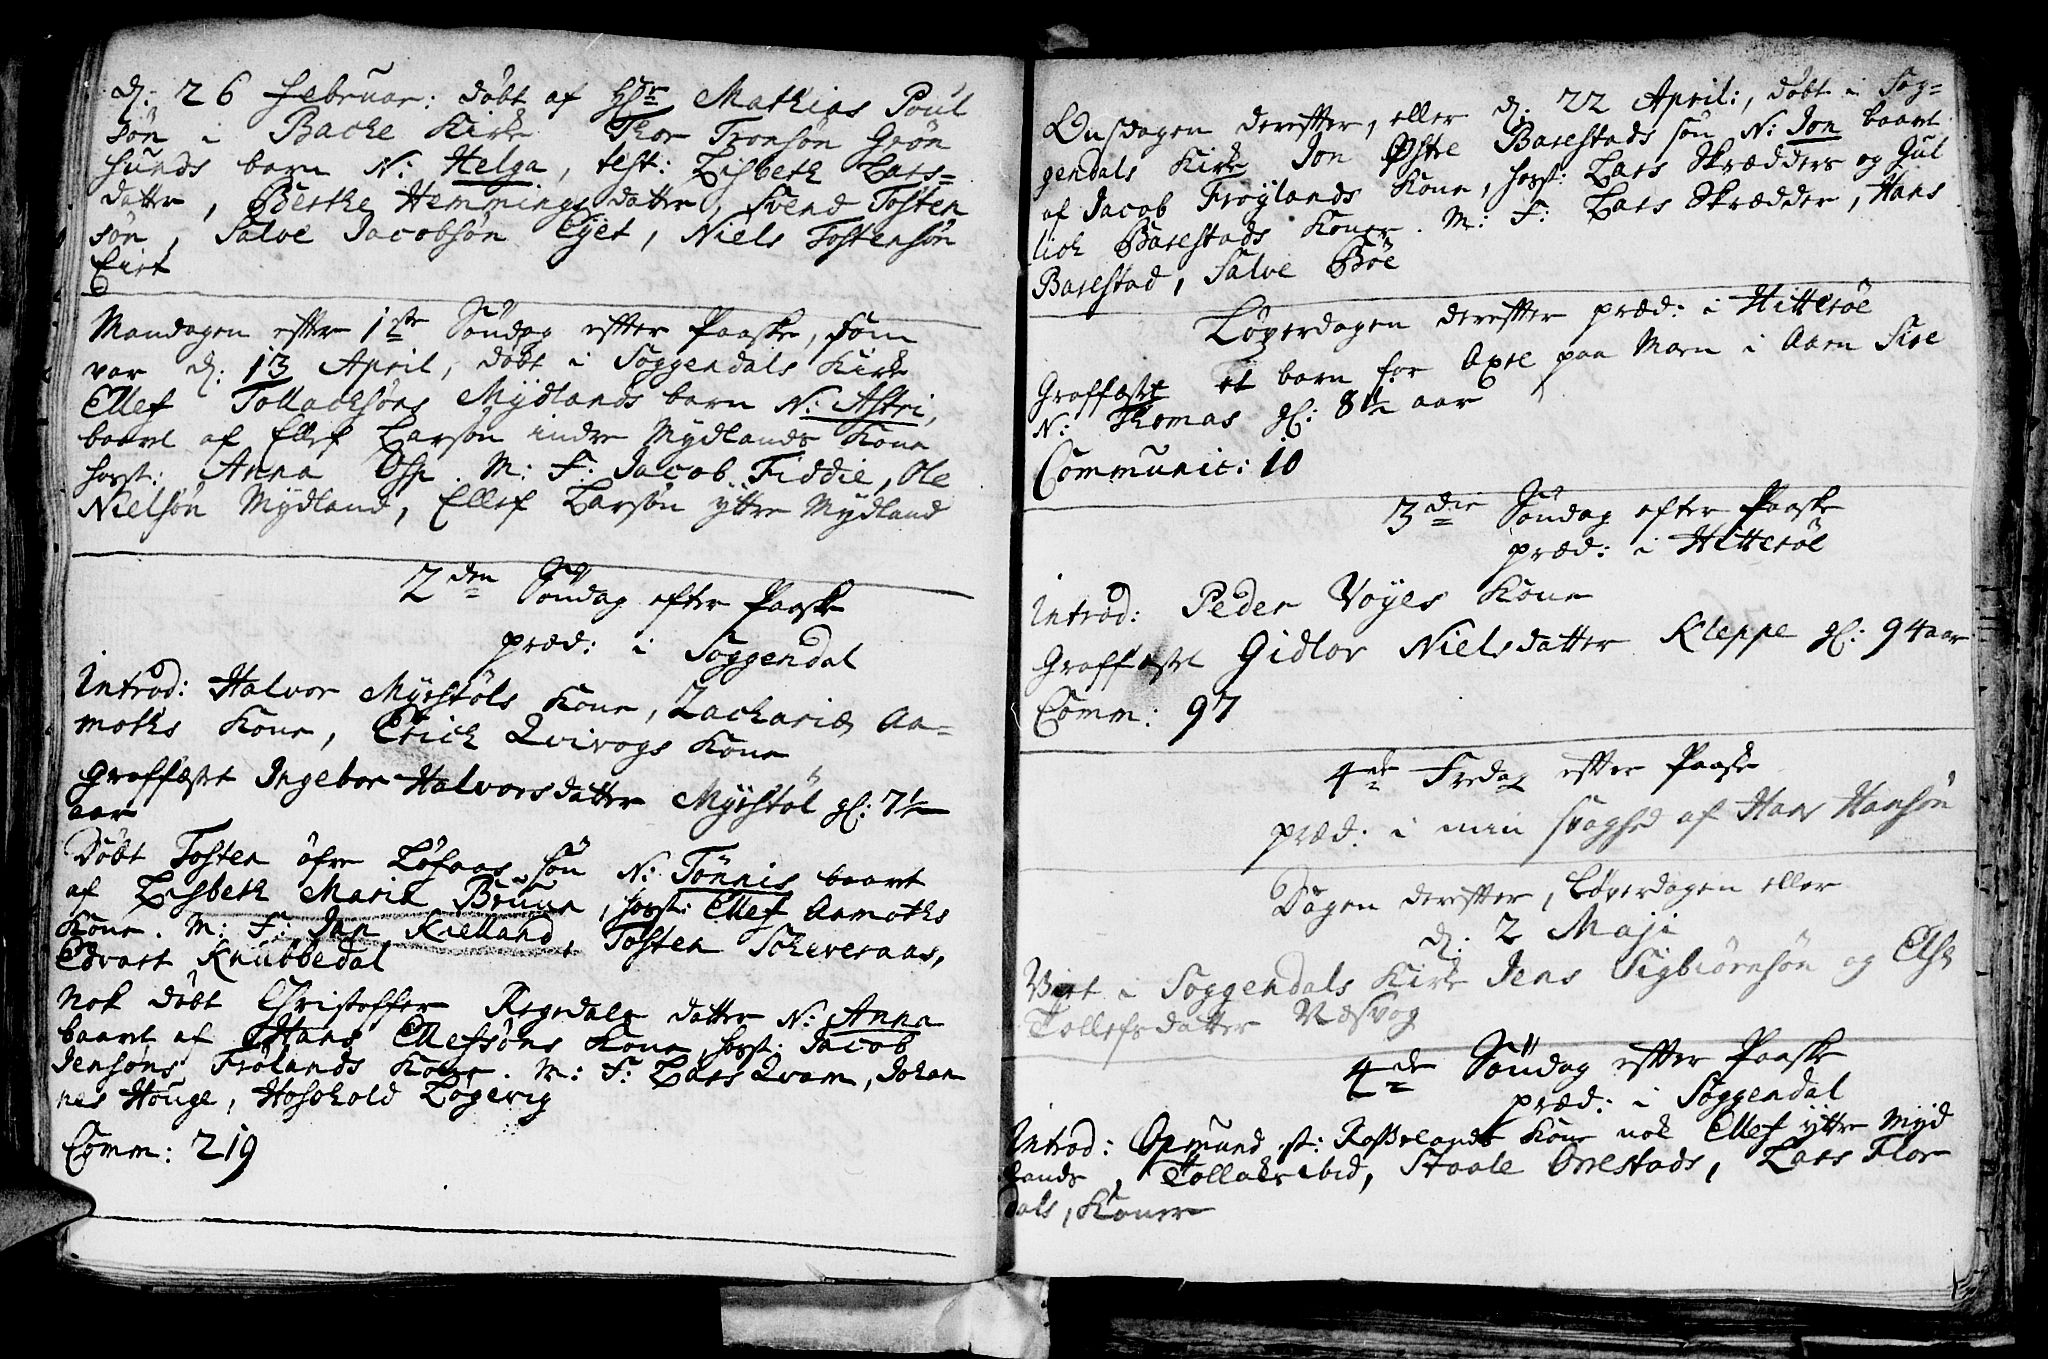 d: 26 Februar: döbt af Hr Mathias Poul
sön i Backe Kirke Thor Tronsön Grön
sunds barn N: Helga, test: Lisbeth Lars=
datter, Berthe Hemmings datter, Svend Tosten
sön, Salve Jacobsön Eget, Niels Tostensön
Eiet
Mandagen efter 1ste Söndag efter Paaske, som
var d: 13 April, döbt i Soggendals Kirke
Ellef Tollacksöns Mydlands barn N: Astri,
baaret af Ellef Larsön indre Mydlands Kone
horst: Anna . M: F: Jacob Fiddie, Ole
Nielsön Mydland, Ellef Larsön yttre Mydland
2den Söndag efter Paaske
præd: i Soggendal
Introd: Halvor Myrstöls Kone, Zachariæ Aa=
moths Kone, Erich Qvivogs Kone
Graffæstet Ingebor Halvorsdatter Myrstöl gl: 7½
aar
Döbt Tosten öfre Löfaas sön N: Tönnis baaret
af Lisbeth Maria Bruun, horst: Ellef Aamoths
Kone. M: F: Jan Kielland, Tosten Schiveraas,
Edvart Knubbedal
Nok döbt Christoffer Regedals datter N: Anna
baaret af Hans Ellefsöns Kone, horst: Jacob
Jensöns Frölands Kone. M: F: Lars Qvam, Johan
nes Houge, Hoskold Løgevig
Comm: 219
Onsdagen derefter, eller d: 22 April:, döbt i Sog=
gendals Kirke Jon Østre Barestads sön N: Jon baaret
af Jacob Frøylands Kone, horst: Lars Skrædders og Gul
lich Barestads Koner. M: F: Lars Skrædder, Hans
Barestad, Salve Böe
Løverdagen derefter præd: i Hitteröe
Graffæstet et barn for Axel paa Marn i Aarn Sire
N: Thomas gl: 8½ aar
Communic: 10
3die Söndag efter Paaske
præd: i Hitteröe
Introd: Peder Vøyes Kone
Graffæstet Gidlov Nielsdatter Kleppe gl: 94 aar
Comm: 97
4de Fredag efter Paaske
præd: i min svaghed af Hans Hansön
Dagen derefter, Løverdagen eller
d: 2 Maji
Viet i Soggendals Kirke Jens Sigbiörnsön og Else
Tollefsdatter Næsvog
4de Söndag efter Paaske
præd: i Soggendal
Introd: Osmund st: Rosselands Kone nok Ellef yttre Myd
lands, Tollaks ibid, Staale Orrestads, Lars Flor
dals, Koner